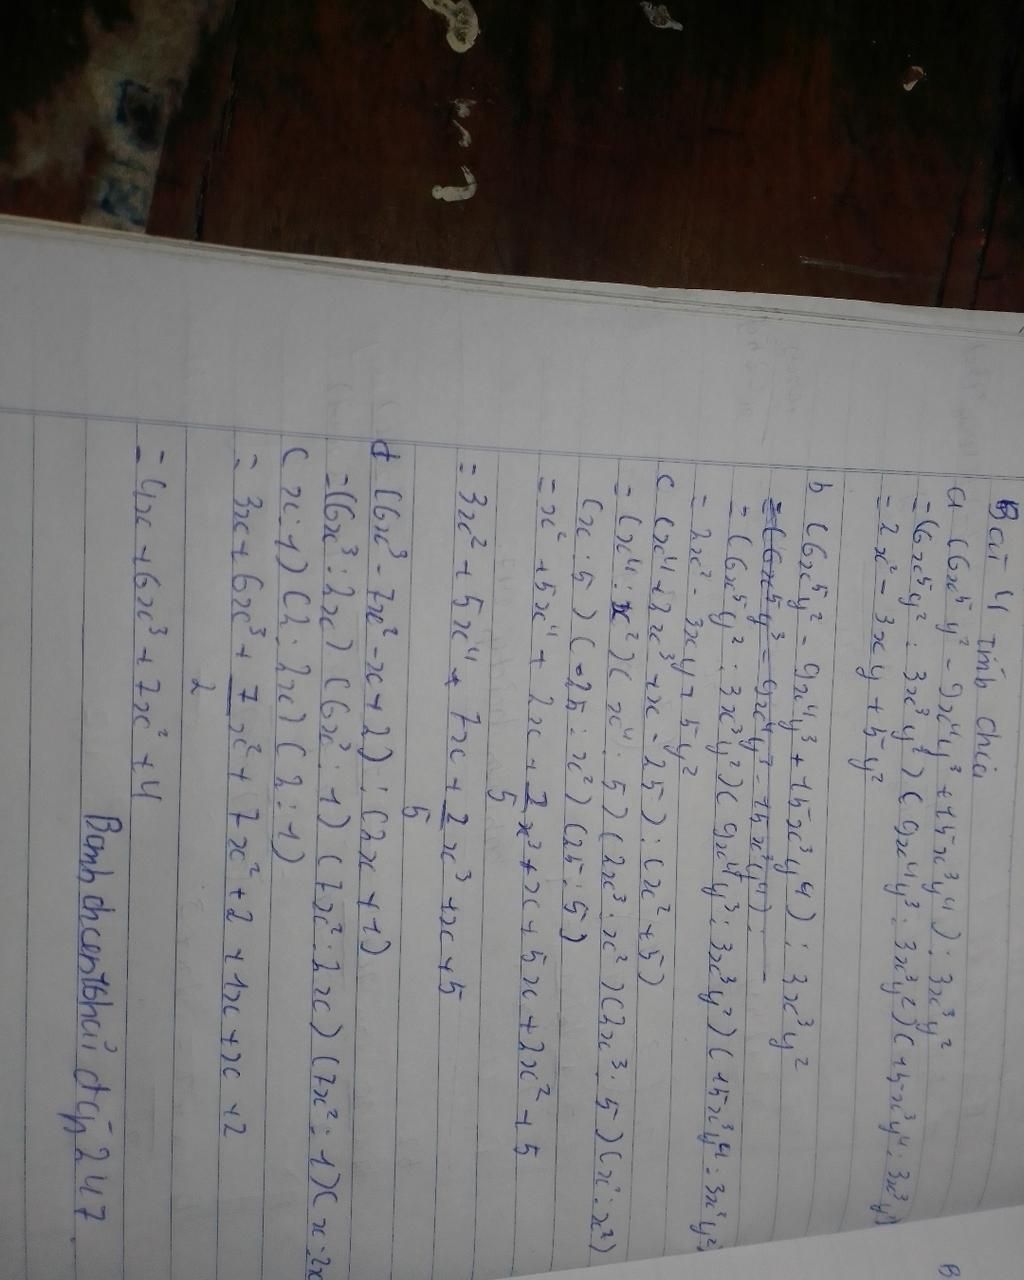 Bài 4 tính chia
a (6x⁵y² - 9x⁴y³ + 15x³y⁴) : 3x³y²
= (6x⁵y² : 3x³y²) (9x⁴y³ : 3x³y²) (15x³y⁴ : 3x³y²)
= 2x² - 3xy + 5y²
b (6x⁵y² - 9x⁴y³ + 15x³y⁴) : 3x³y²
= (6x⁵y³ - 9x⁴y³ - 15x³y⁴) : -
= (6x⁵y² : 3x³y²) (9x⁴y³ : 3x³y²) (15x³y⁴ : 3x³y²)
= 2x² - 3xy + 5y²
c (x⁴ + 2x³ + x - 25) : (x² + 5)
= (x⁴ : x²) (x⁴ : 5) (2x³ : x²) (2x³ : 5) (x : x²)
(x : 5) (-25 : x²) (25 : 5)
= x² + 5x⁴ + 2x + 2/5 x³ + x + 5x + 2x² + 5
= 3x² + 5x⁴ + 7x + 2/5 x³ + x + 5
d (6x³ - 7x² - x + 2) : (2x + 1)
= (6x³ : 2x) (6x³ : 1) (7x² : 2x) (7x² : 1) (x : 2x
(x : 1) (2 : 2x) (2 : 1)
= 3x + 6x³ + 7/2 x² + 7x² + 2 + 1x + x + 2
= 4x + 6x³ + 7x² + 4
247
B